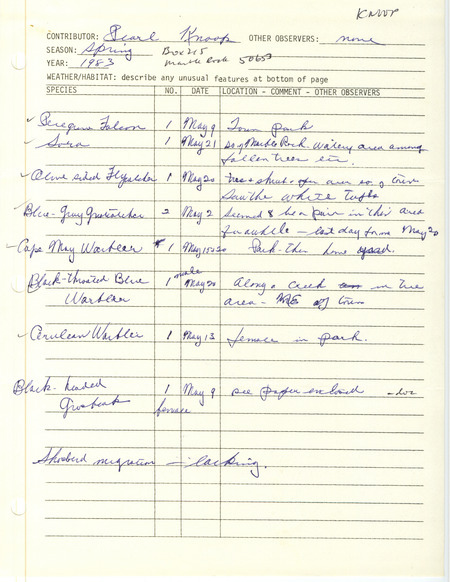 KNOP
CONTRIBUTOR: Pearl Knoop OTHER OBSERVERS: none
SEASON: Spring Box 215
YEAR: 1983 Marble Rock 50653
WEATHER/HABITAT: describe any unusual features at bottom of page
SPECIES NO. DATE LOCATION - COMMENT - OTHER OBSERVERS
Peregrine Falcon 1 May 9 Town park
Sora 1 May 21 so of Marble Rock Watery area among
fallen trees etc.
Olive sided Flycatcher 1 May 20 tree & shrub area so of town
Saw the white tufts
Blue-Gray Gnatcatcher 2 May 2 seemed to be a pair in this area
for awhile - last day for me May 20
Cape May Warbler 1 May 15 & 20 Park - then home yard.
Black-throated Blue 1 male May 20 Along a creek in tree
Warbler area - of town
Cerulean Warbler 1 May 13 female in park.
Black-headed 1 May 9 see paper enclosed -doc
Grosbeak female
Shorebird migration - lacking.